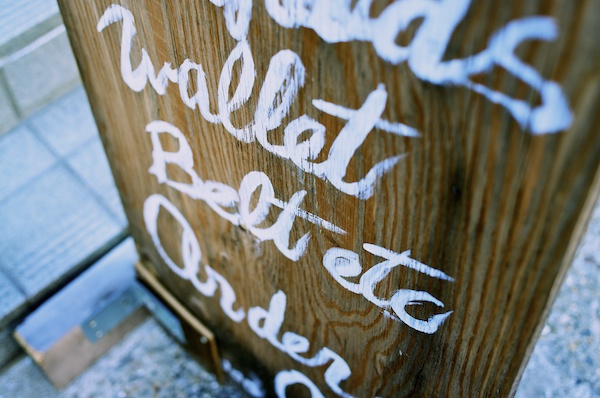 wallet
Belt etc
Order